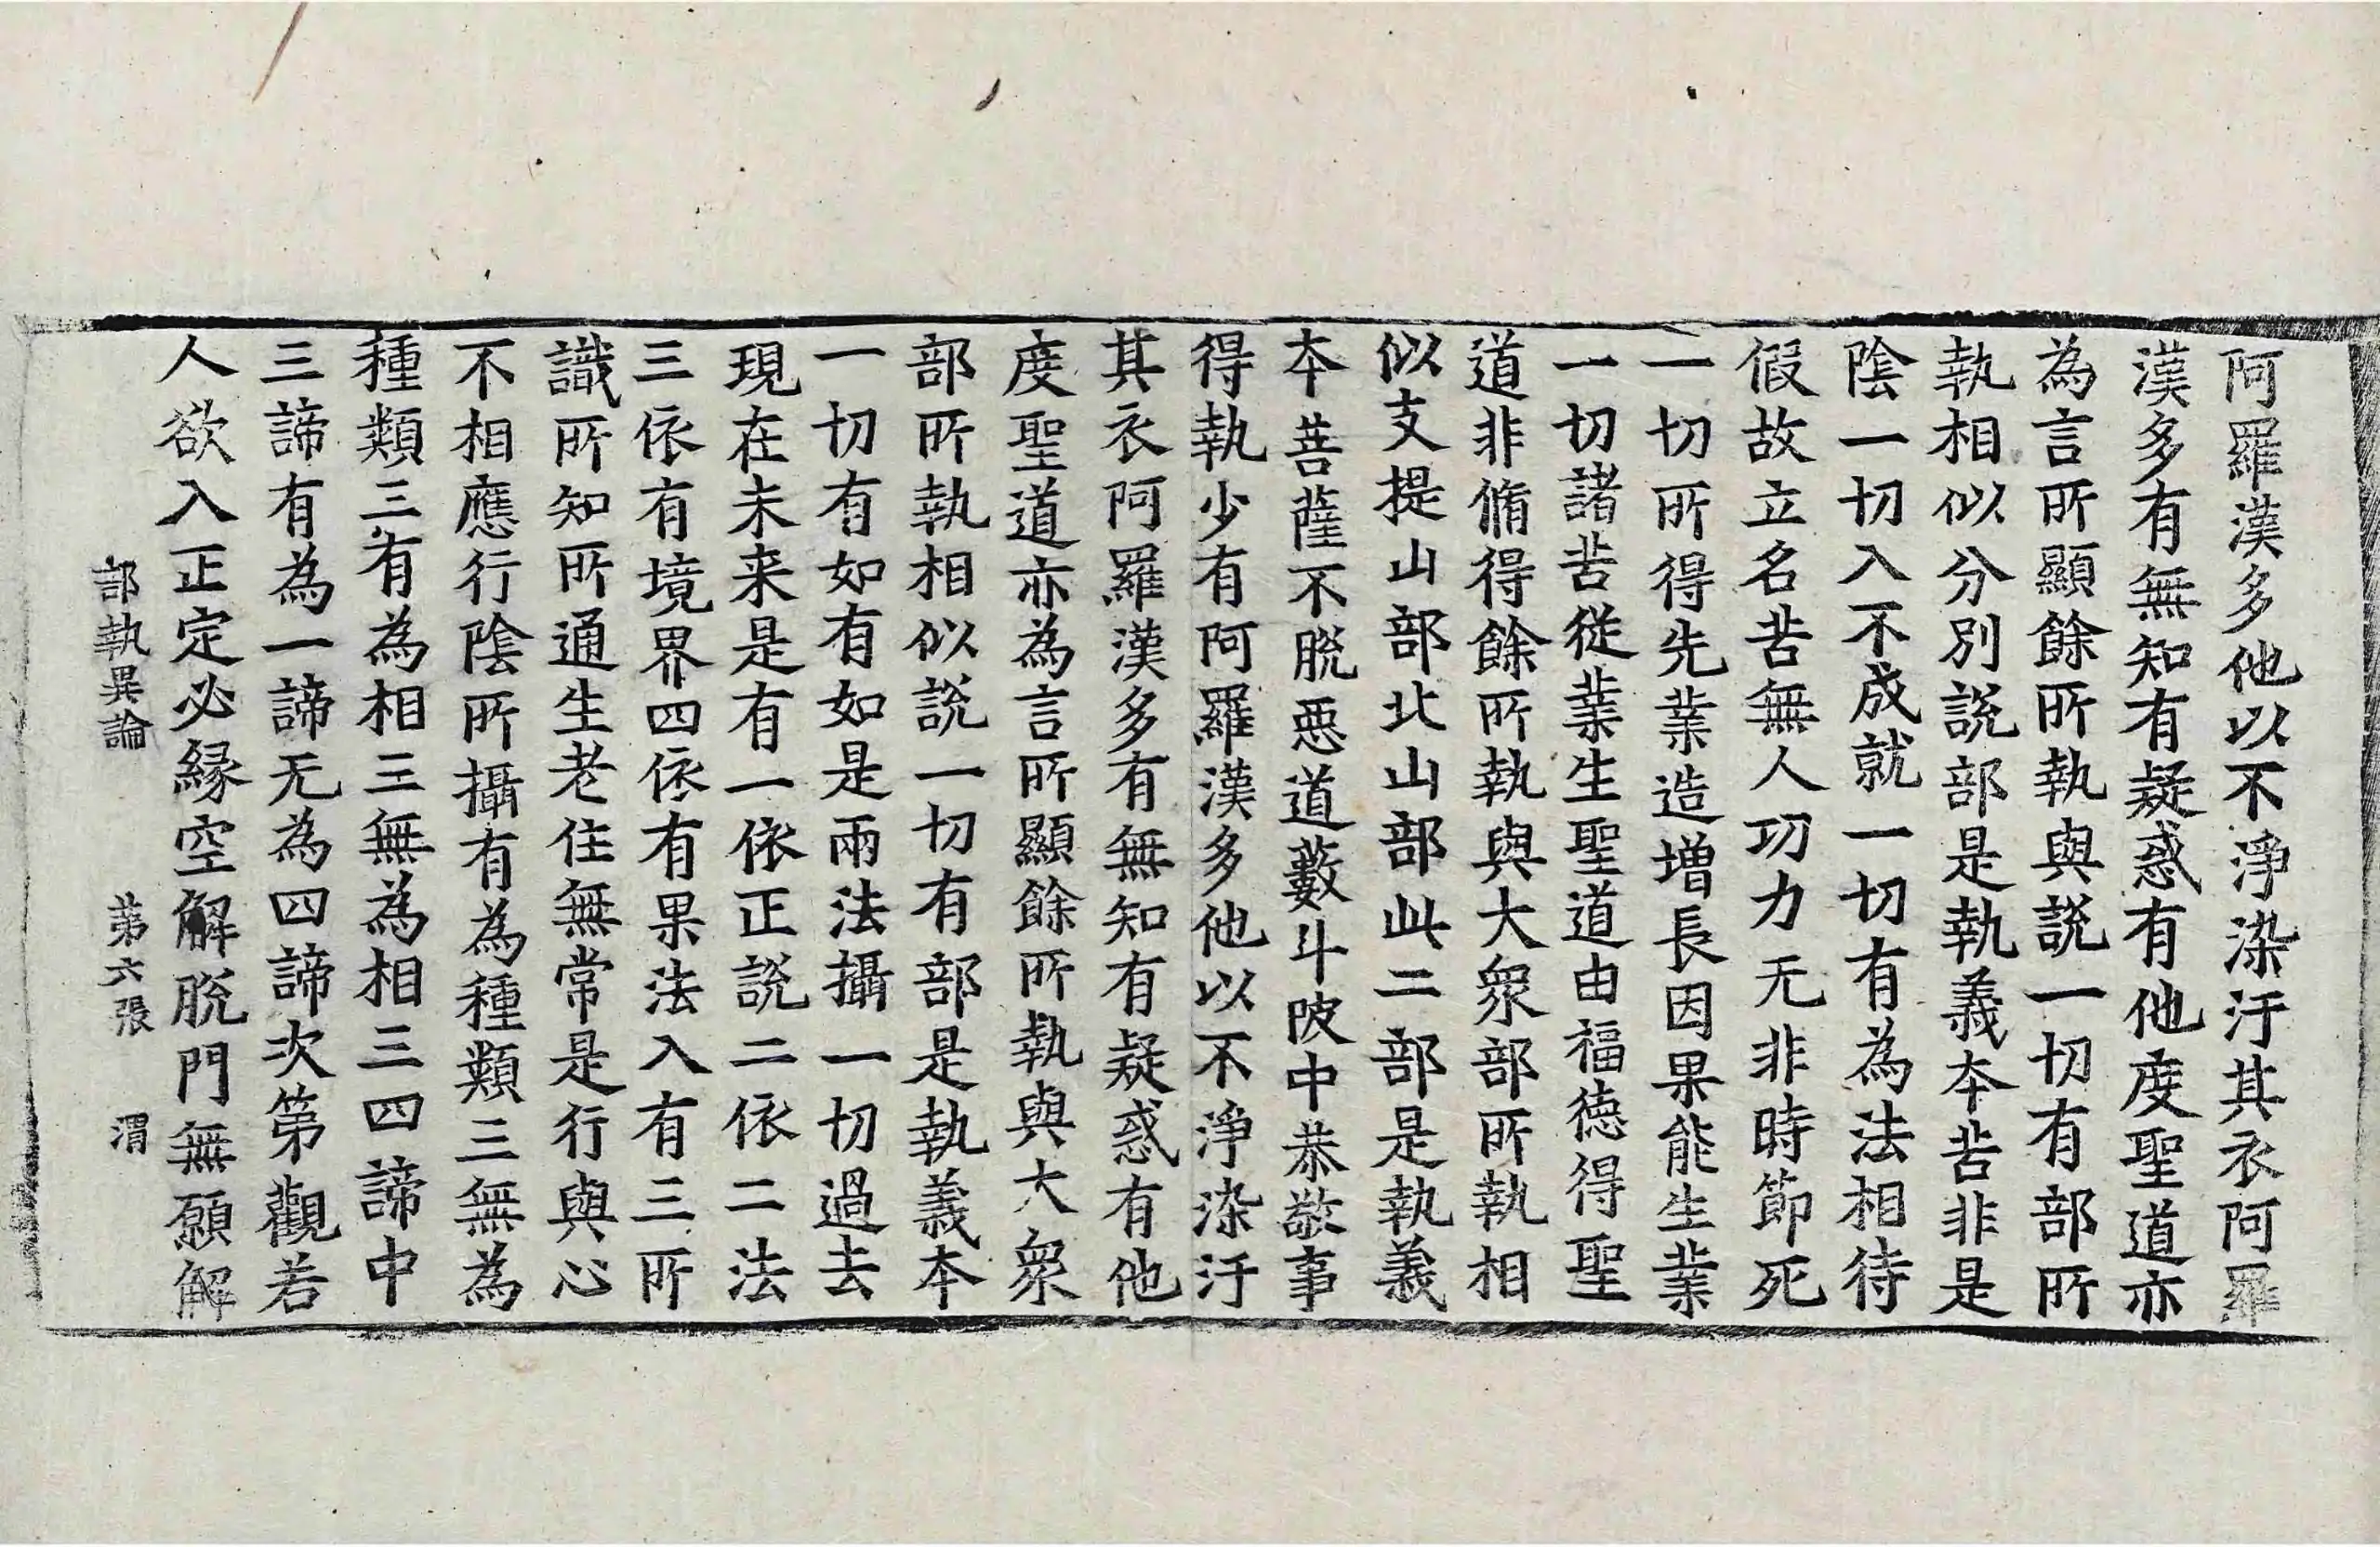 阿羅漢多他以不淨染汙其衣阿羅
漢多有無知有疑惑有他度聖道亦
為言所顯餘所執與說一切有部所
執相似分別說部是執義本苦非是
陰一切入不成就一切有為法相待
假故立名苦無人功力无非時節死
一切所得先業造增長因果能生業
一切諸苦從業生聖道由福德得聖
道非脩得餘所執與大衆部所執相
似支提山部北山部此二部是執義
本菩薩不脫惡道藪斗陂中恭敬事
得執少有阿羅漢多他以不淨染汙
其衣阿羅漢多有無知有疑惑有他
度聖道亦為言所顯餘所執與大衆
部所執相似說一切有部是執義本
一切有如有如是兩法攝一切過去
現在未来是有一依正說二依二法
三依有境界四依有果法入有三所
識所知所通生老住無常是行與心
不相應行陰所攝有為種類三無為
種類三有為相三無為相三四諦中
三諦有為一諦无為四諦次第觀若
人欲入正定必緣空解脫門無願解
部執異論 第六張 渭